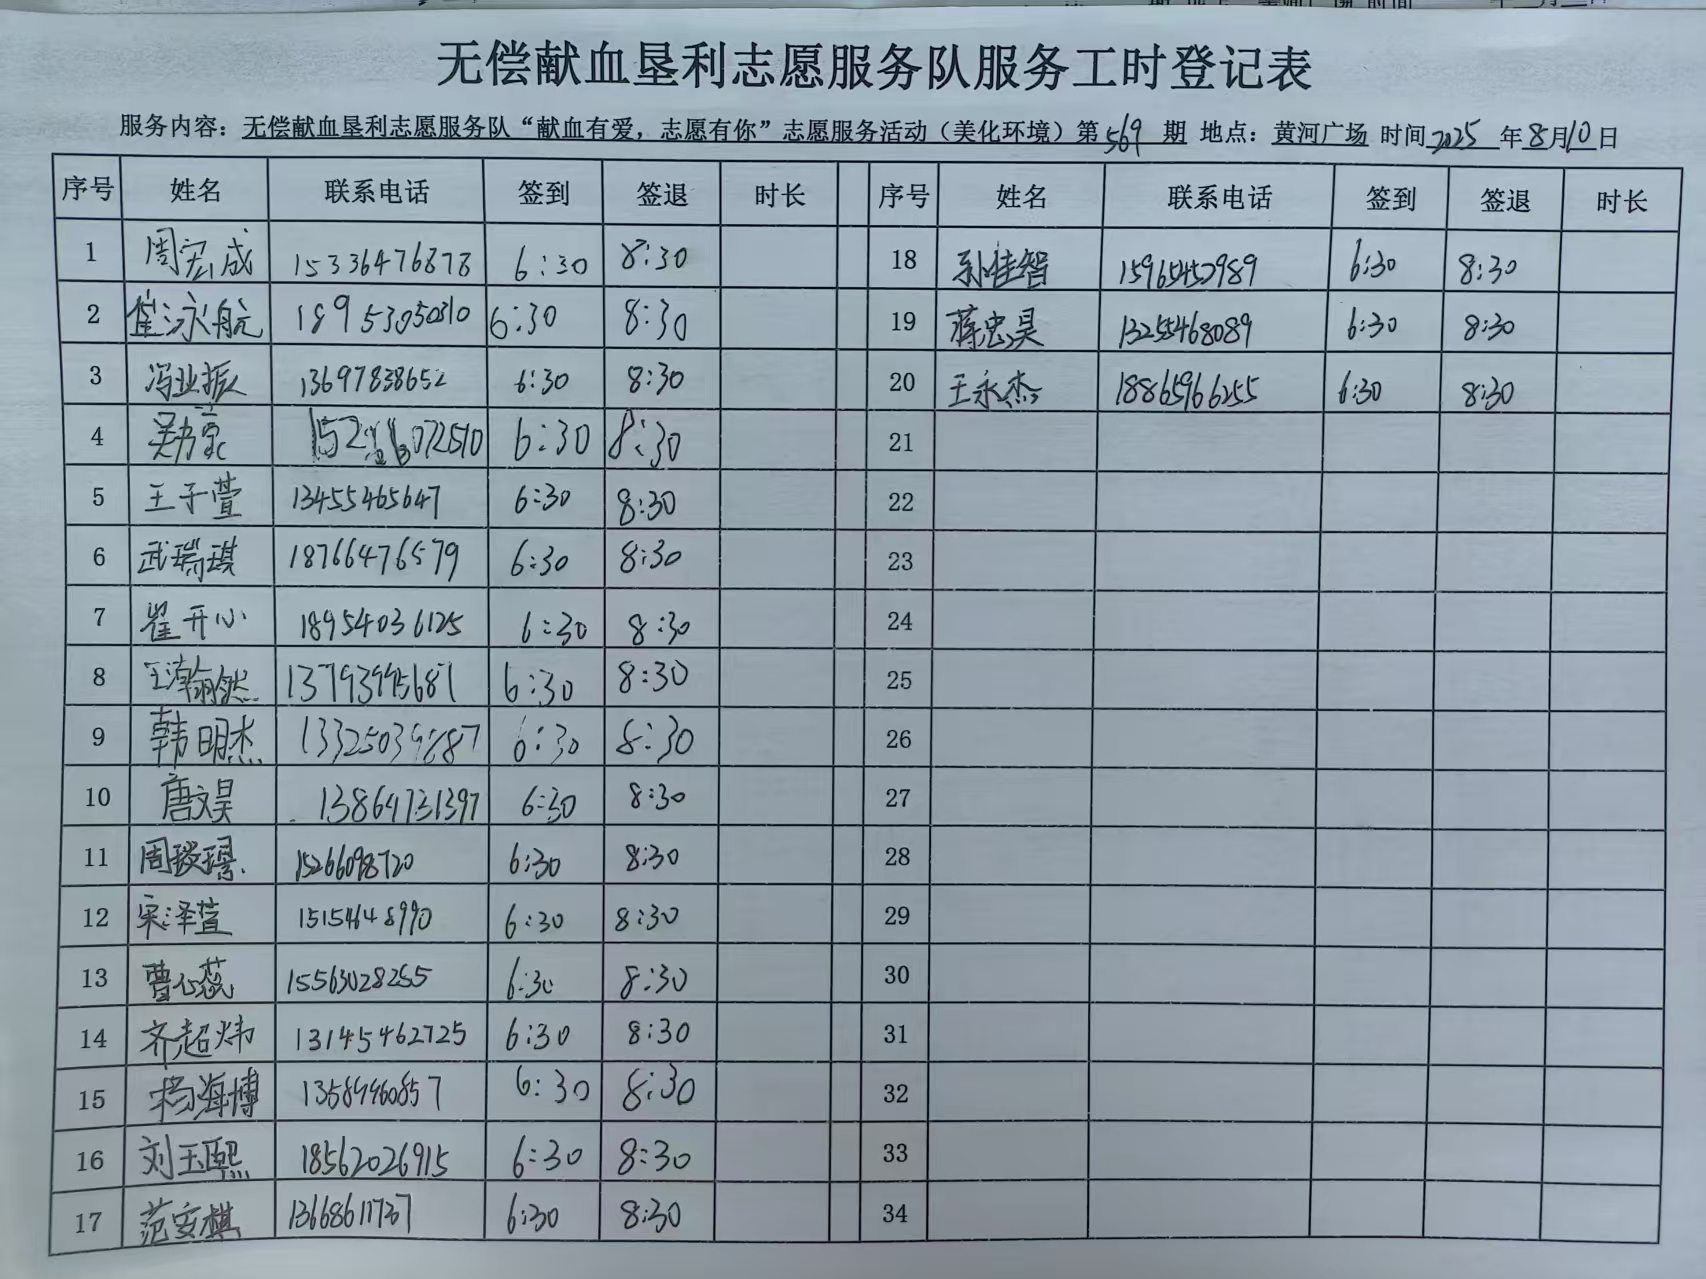 无偿献血垦利志愿服务队服务工时登记表
服务内容：无偿献血垦利志愿服务队“献血有爱，志愿有你”志愿服务活动（美化环境）第569期 地点：黄河广场 时间2025年8月10日
序号 姓名 联系电话 签到 签退 时长 序号 姓名 联系电话 签到 签退 时长
1 周宏成 15336476878 6:30 8:30 18 孙佳智 15965452989 6:30 8:30
2 崔泳航 18953050310 6:30 8:30 19 蒋忠昊 13255468089 6:30 8:30
3 冯业振 13697838652 6:30 8:30 20 王永杰 18865966255 6:30 8:30
4 6:30 8:30 21
5 王子萱 13455465647 6:30 8:30 22
6 武瑞琪 18766476579 6:30 8:30 23
7 崔开心 18954036125 6:30 8:30 24
8 王瀚然 6:30 8:30 25
9 韩明杰 6:30 8:30 26
10 唐文昊 13864731397 6:30 8:30 27
11 15266098720 6:30 8:30 28
12 宋泽萱 15154648990 6:30 8:30 29
13 曹心蕊 15563028255 6:30 8:30 30
14 齐超炜 13145462725 6:30 8:30 31
15 杨海博 13589960857 6:30 8:30 32
16 刘玉熙 18562026915 6:30 8:30 33
17 范安棋 13668611737 6:30 8:30 34